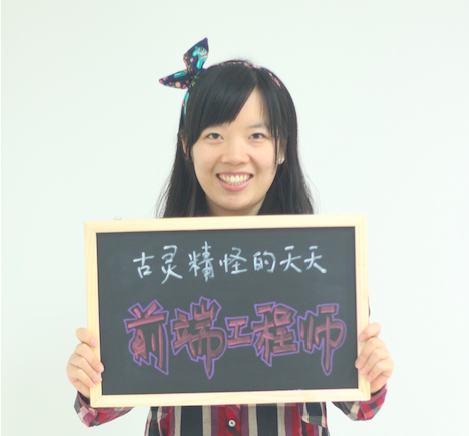 古灵精怪的天天
前端工程师